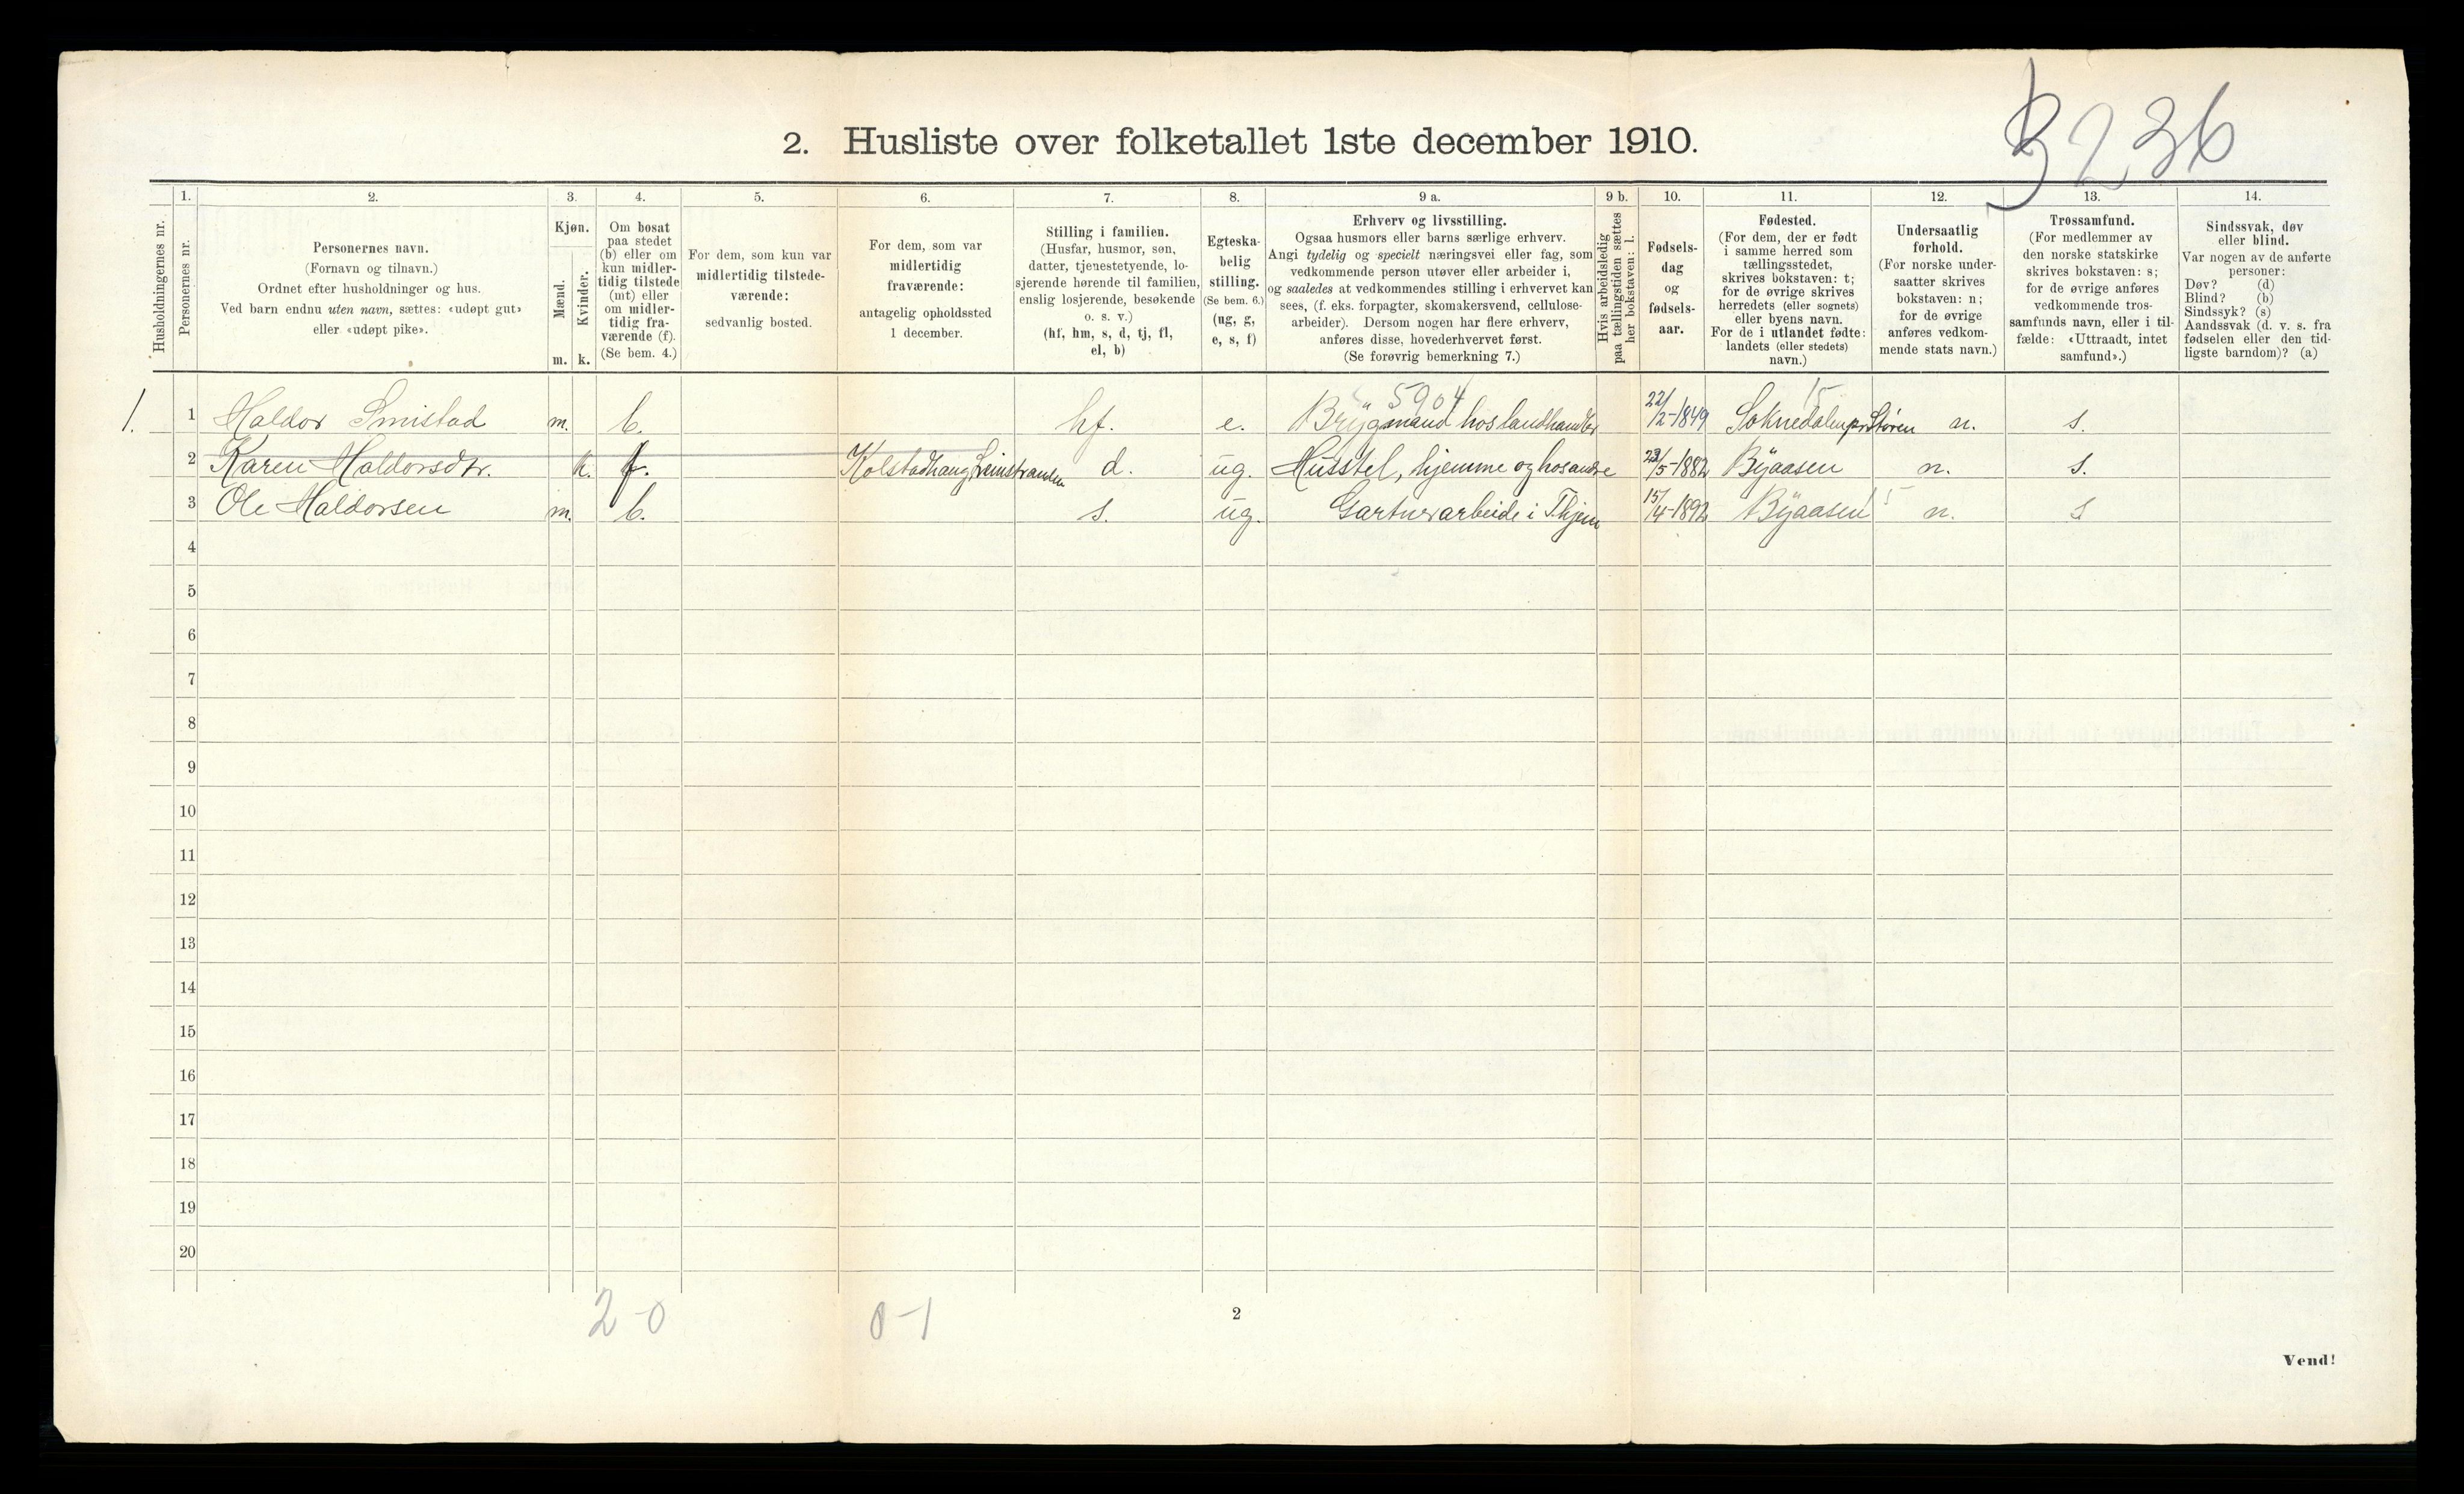 B 236
2. Husliste over folketallet 1ste december 1910.
Husholdningernes nr.
1.
Personernes nr.
2.
Personernes navn.
(Fornavn og tilnavn.)
Ordnet efter husholdninger og hus.
Ved barn endnu uten navn, sættes: «udøpt gut»
eller «udøpt pike».
3.
Kjøn.
Mænd.
m.
Kvinder.
k.
4.
Om bosat
paa stedet
(b) eller om
kun midler-
tidig tilstede
(mt) eller
om midler-
tidig fra-
værende (f).
(Se bem. 4.)
5.
For dem, som kun var
midlertidig tilstede-
værende:
sedvanlig bosted.
6.
For dem, som var
midlertidig
fraværende:
antagelig opholdssted
1 december.
7.
Stilling i familien.
(Husfar, husmor, søn,
datter, tjenestetyende, lo-
sjerende hørende til familien,
enslig losjerende, besøkende
o. s. v.)
(hf, hm, s, d, tj, fl,
el, b)
8.
Egteska-
belig
stilling.
(Se bem. 6.)
(ug, g,
e, s, f)
9 a.
Erhverv og livsstilling.
Ogsaa husmors eller barns særlige erhverv.
Angi tydelig og specielt næringsvei eller fag, som
vedkommende person utøver eller arbeider i,
og saaledes at vedkommendes stilling i erhvervet kan
sees, (f. eks. forpagter, skomakersvend, cellulose-
arbeider). Dersom nogen har flere erhverv,
anføres disse, hovederhvervet først.
(Se forøvrig bemerkning 7.)
9 b.
Hvis arbeidsledig
paa tællingstiden sættes
her bokstaven: l.
10.
Fødsels-
dag
og
fødsels-
aar.
11.
Fødested.
(For dem, der er født
i samme herred som
tællingsstedet,
skrives bokstaven: t;
for de øvrige skrives
herredets (eller sognets)
eller byens navn.
For de i utlandet fødte:
landets (eller stedets)
navn.)
12.
Undersaatlig
forhold.
(For norske under-
saatter skrives
bokstaven: n;
for de øvrige
anføres vedkom-
mende stats navn.)
13.
Trossamfund.
(For medlemmer av
den norske statskirke
skrives bokstaven: s;
for de øvrige anføres
vedkommende tros-
samfunds navn, eller i til-
fælde: «Uttraadt, intet
samfund».)
14.
Sindssvak, døv
eller blind.
Var nogen av de anførte
personer:
Døv? (d)
Blind? (b)
Sindssyk? (s)
Aandssvak (d. v. s. fra
fødselen eller den tid-
ligste barndom)? (a)
5904 15
1. 1 Haldor Smistad m. b. hf. e. Brygmand hos landhandler 22/2-1849 Soknedalen pr Støren n. s.
2 Karen Haldorsdtr. k. f. Kolstadhaug, Leinstranden d. ug. Husstel, hjemme og hos andre 23/5-1882 Byaasen n. s.
3 Ole Haldorsen m. b. s. ug. Gartnerarbeide i Thjem 15/4-1892 Byaasen 15 n. s
4
5
6
7
8
9
10
11
12
13
14
15
16
17
18
19
20
2-0 0-1
2
Vend!